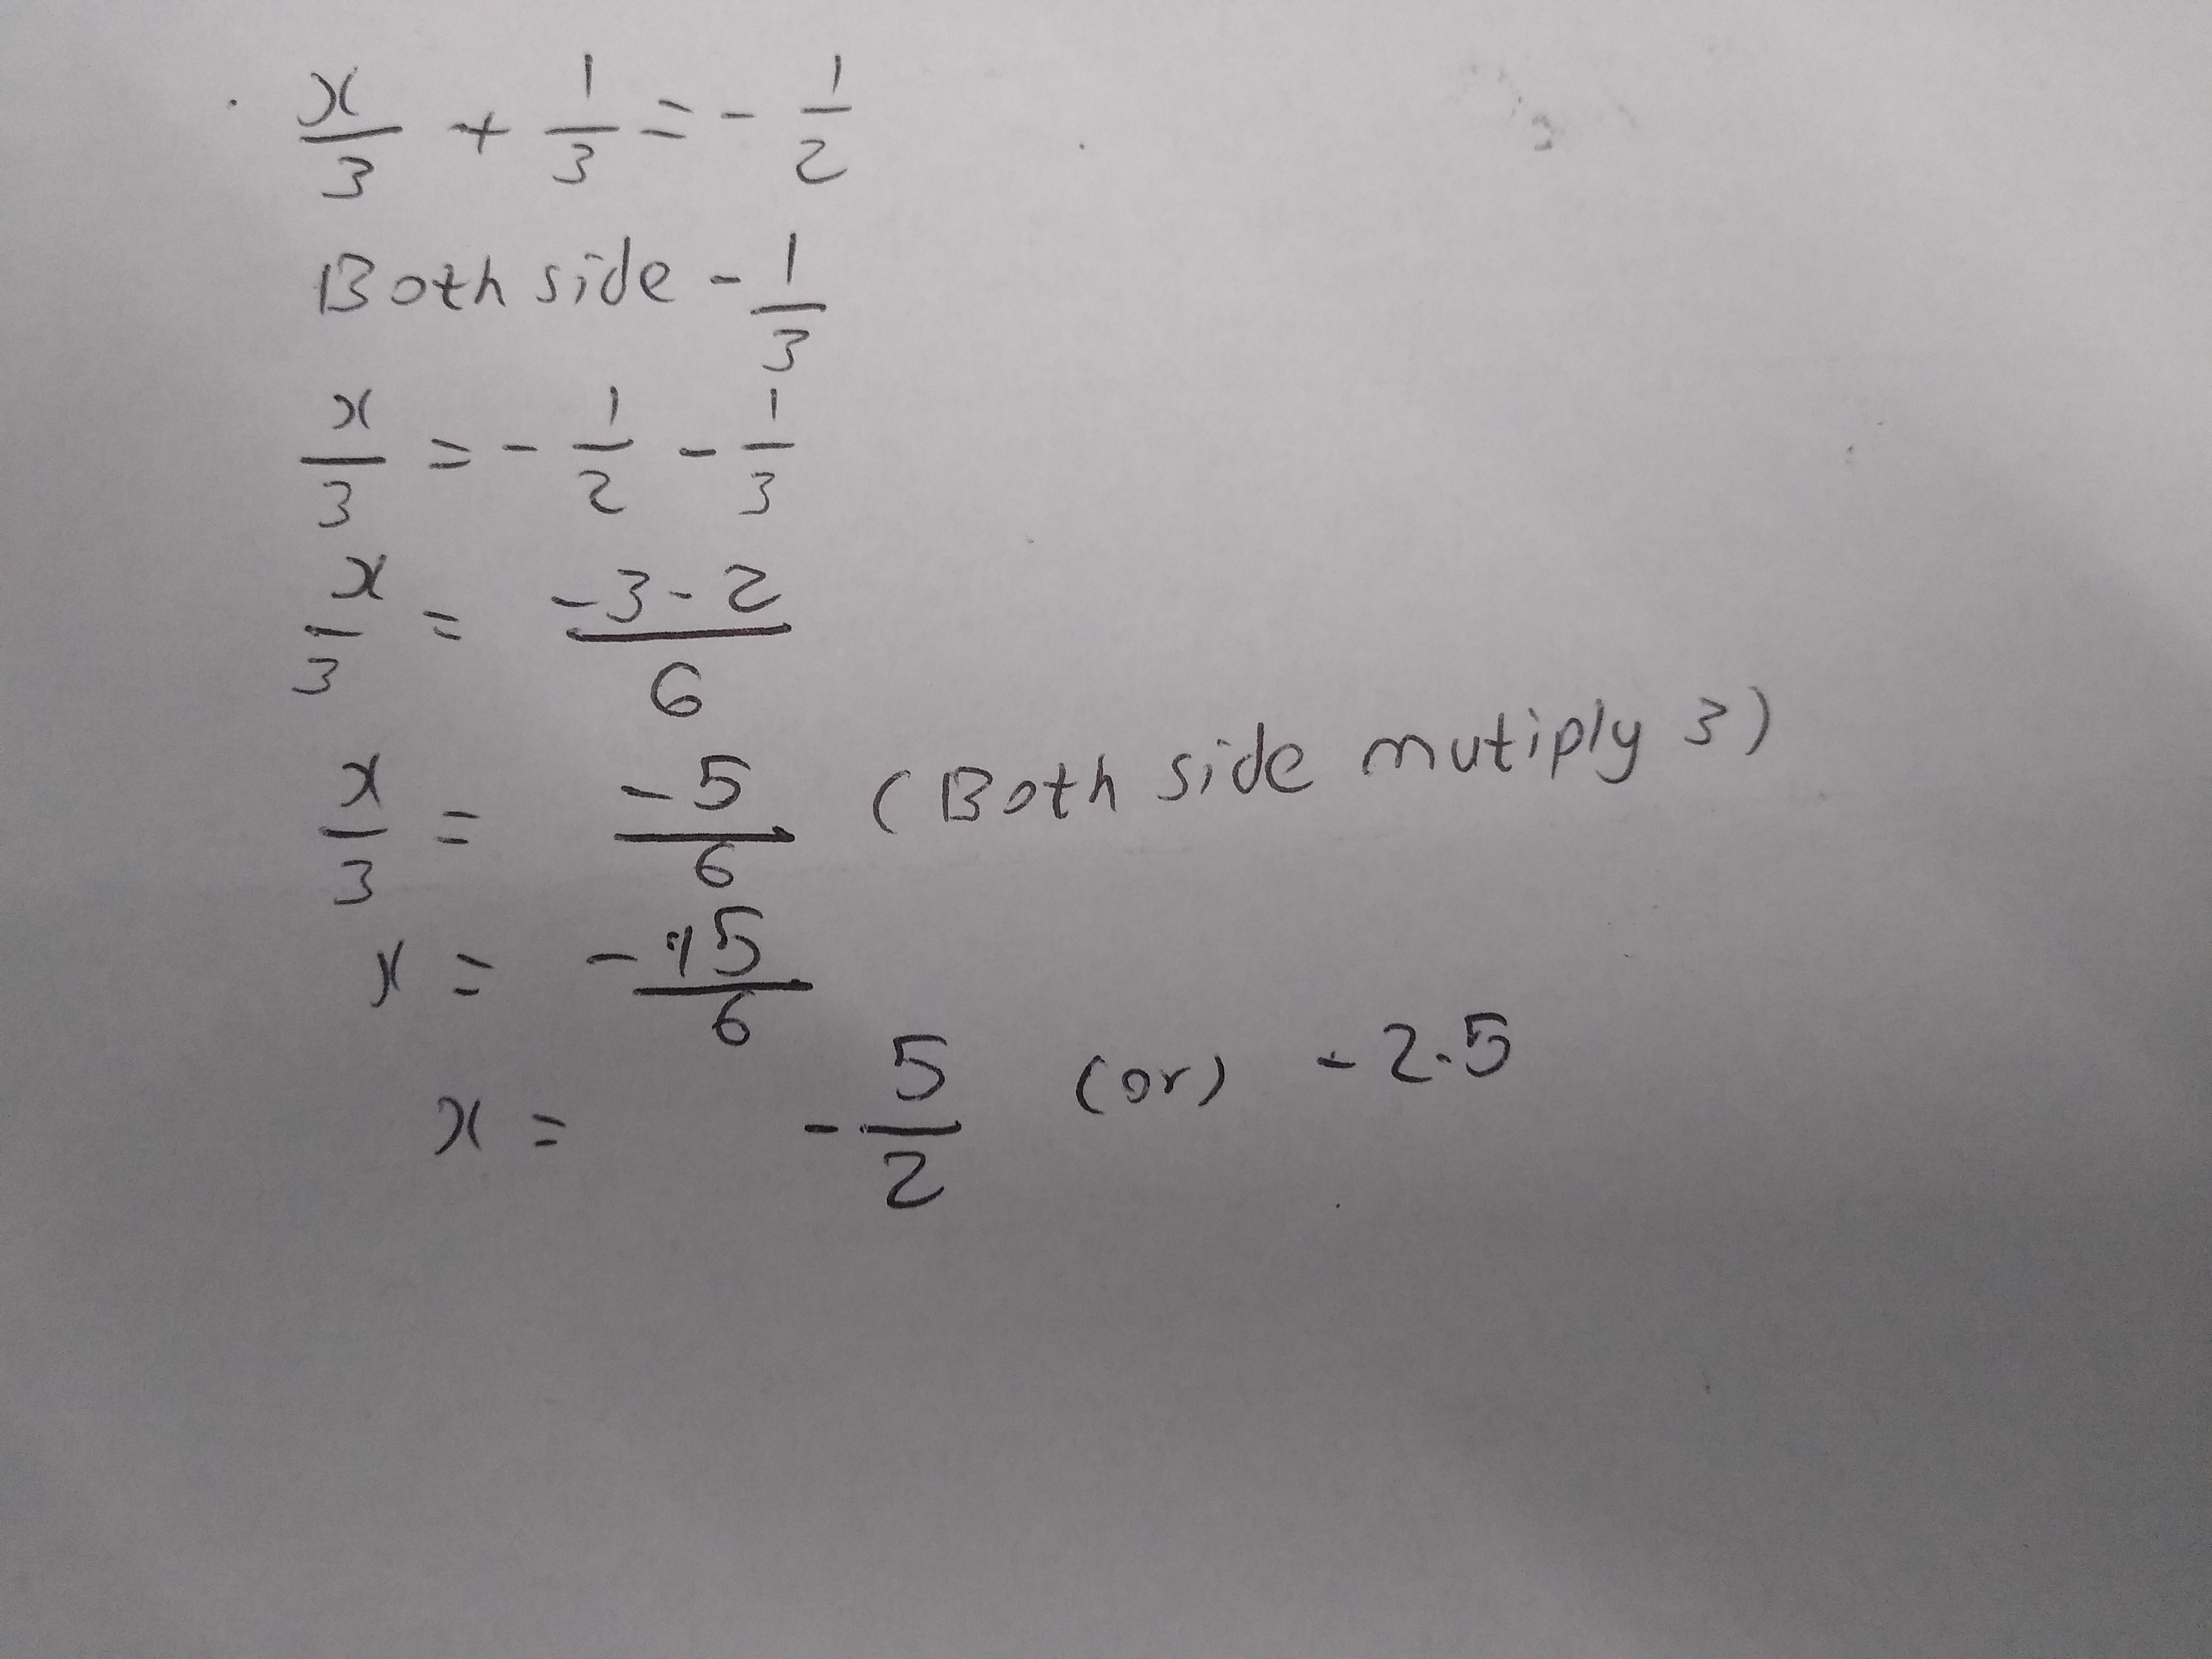 x/3 + 1/3 = - 1/2
Both side - 1/3
x/3 = - 1/2 - 1/3
x/3 = -3-2/6
x/3 = -5/6 (Both side mutiply 3)
x = -15/6
x = - 5/2 (or) - 2.5